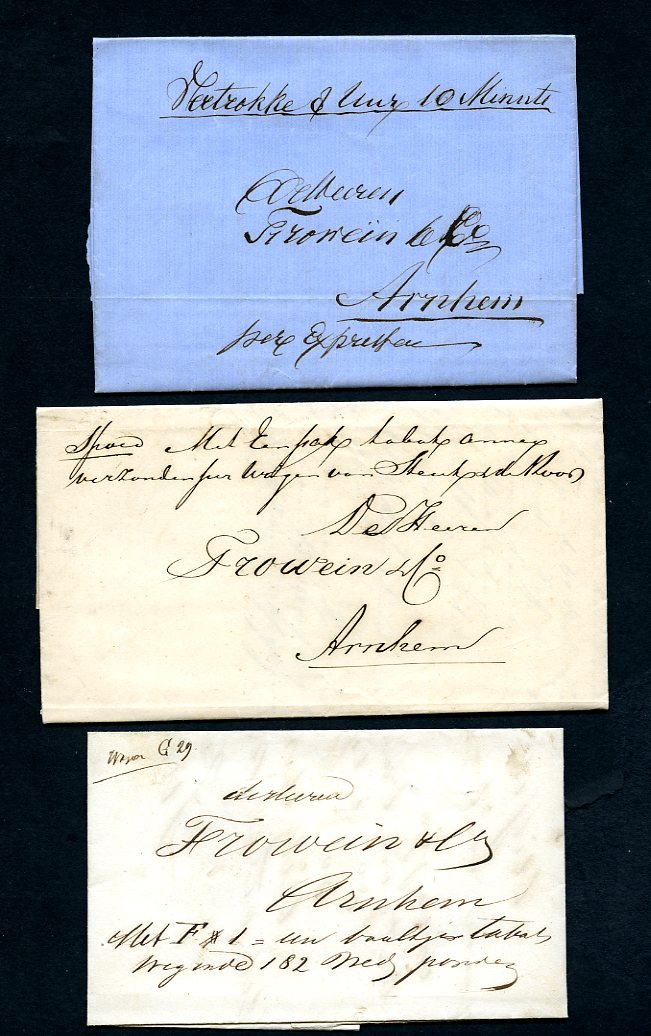 Vertrokke 8 Uur 10 Minute
De Heeren
Frowein & Co
Arnhem
per Expresse
Spoed Met Een pak tabak annex
verzonden per Wagen van
De Heeren
Frowein & Co
Arnhem
Wagen G 29
de Heeren
Frowein & Cy
Arnhem
Met F # 1 = een baaltje tabak
wegende 182 Ned. ponden